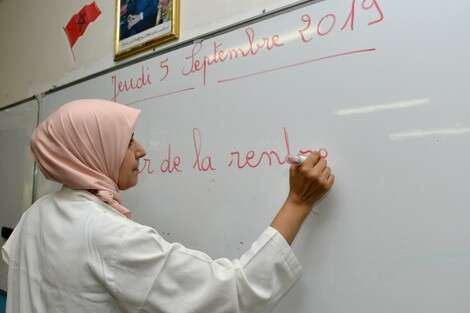 Jeudi 5 Septembre 2019
de la rentr